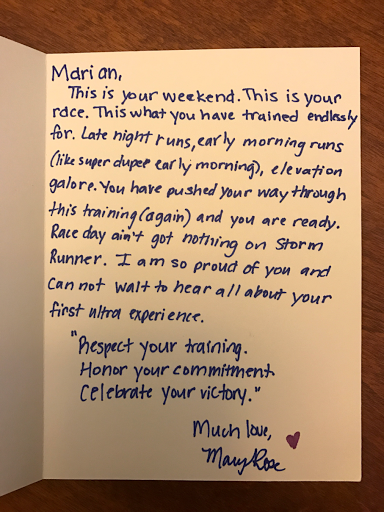 Marian,
This is your weekend. This is your
race. This what you have trained endlessly
for. Late night runs, early morning runs
(like super duper early morning), elevation
galore. You have pushed your way through
this training (again) and you are ready.
Race day ain't got nothing on Storm
Runner. I am so proud of you and
can not wait to hear all about your
first ultra experience.
"Respect your training.
Honor your commitment.
Celebrate your victory."
Much love,
Mary Rose